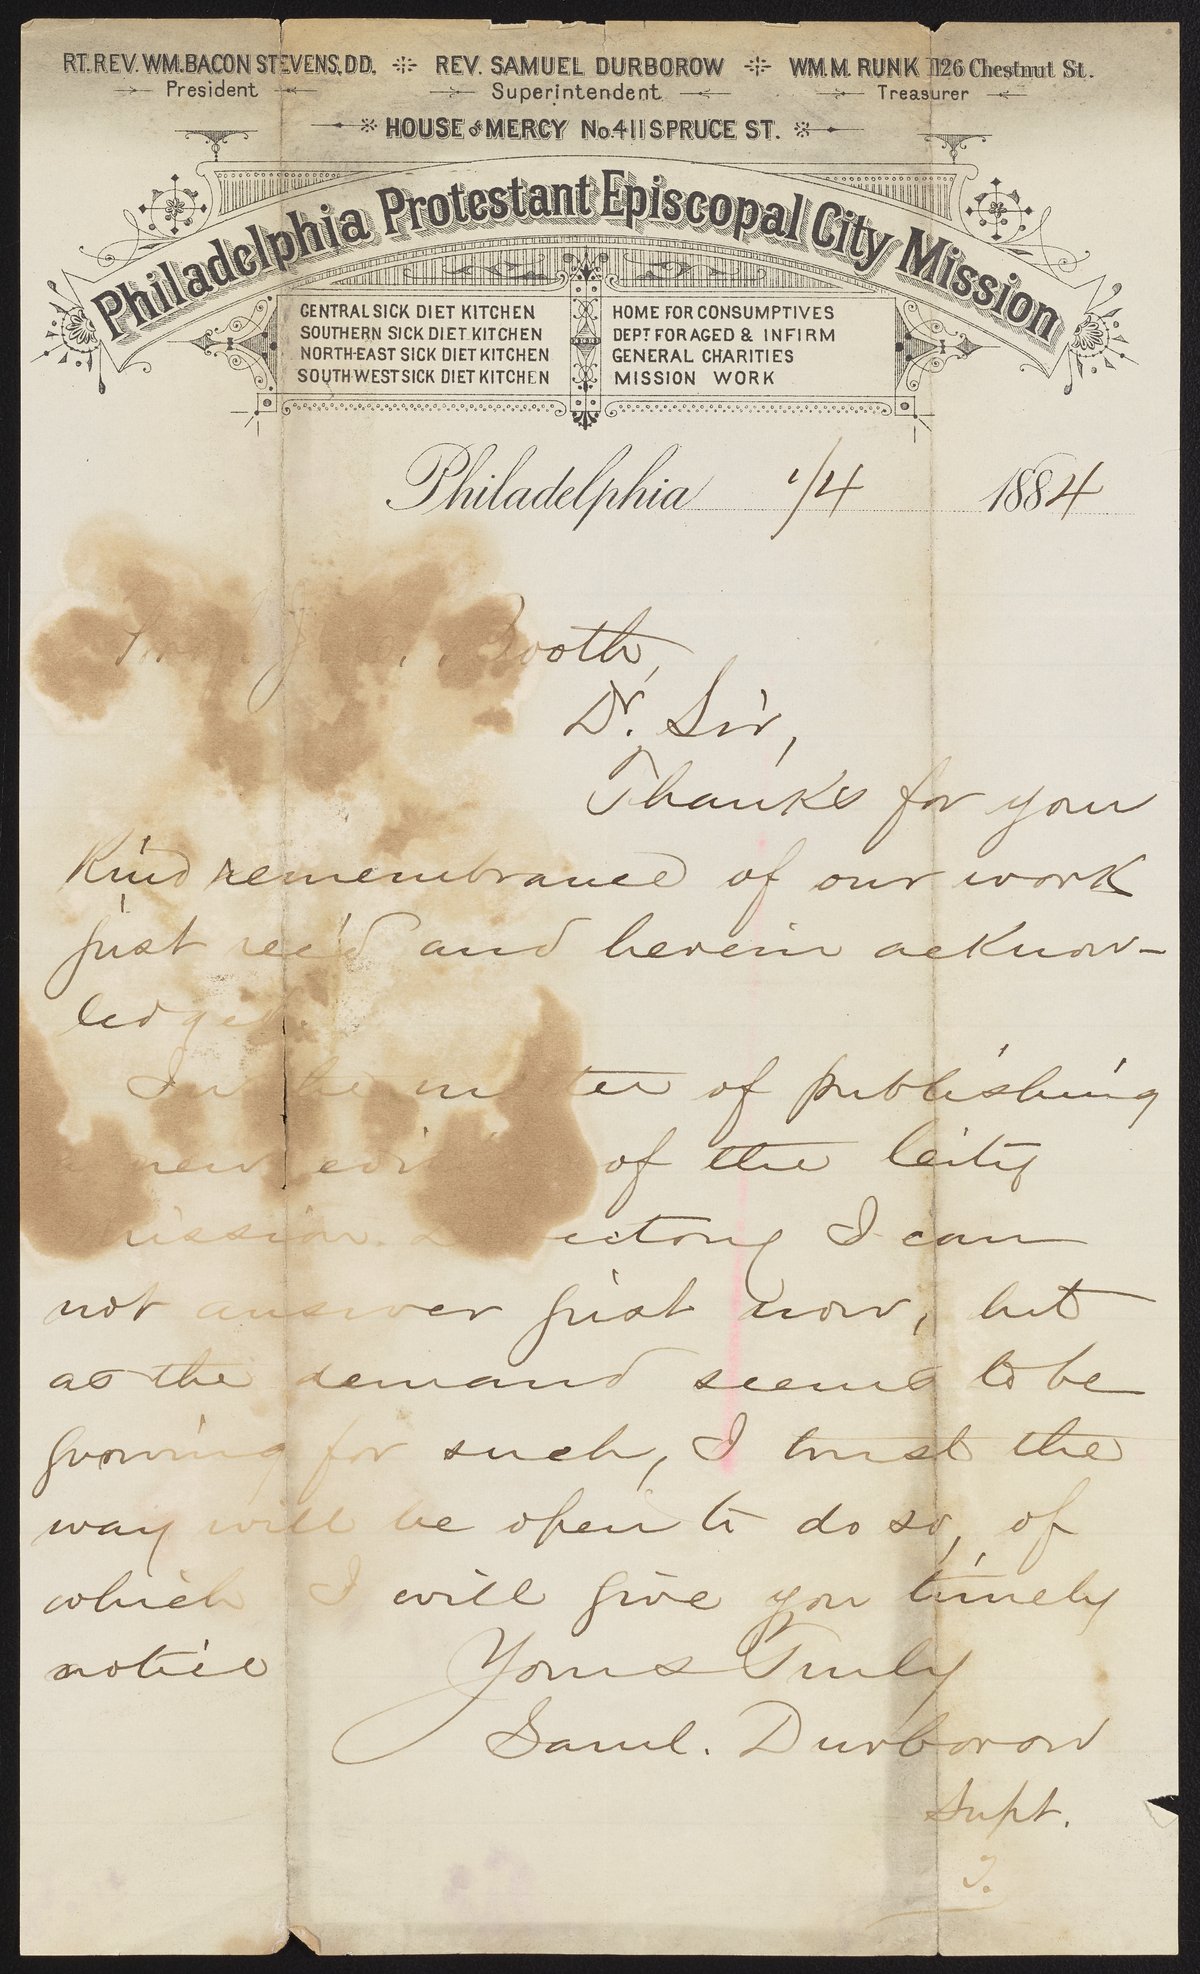 RT. REV. WM. BACON STEVENS, D.D. REV. SAMUEL DURBOROW WM. M. RUNK 1126 Chestnut St.
President Superintendent Treasurer
HOUSE of MERCY No. 411 SPRUCE ST.
Philadelphia Protestant Episcopal City Mission
CENTRAL SICK DIET KITCHEN
SOUTHERN SICK DIET KITCHEN
NORTH-EAST SICK DIET KITCHEN
SOUTH-WEST SICK DIET KITCHEN
HOME FOR CONSUMPTIVES
DEPT. FOR AGED & INFIRM
GENERAL CHARITIES
MISSION WORK
Philadelphia 1/4 1884
Booth,
Dr. Sir,
Thanks for your
Kind remembrance of our work
just rec'd and herein acknow-
ledged.
In the matter of publishing
a new edition of the City
Mission Directory I can
not answer just now, but
as the demand seems to be
growing for such, I trust the
way will be open to do so, of
which I will give you timely
notice
Yours Truly
Saml. Durborow
Supt.